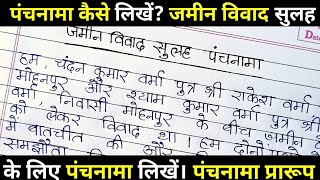 पंचनामा कैसे लिखें? जमीन विवाद सुलह
जमीन विवाद सुलह पंचनामा
हम, चंदन कुमार वर्मा पुत्र श्री राकेश वर्मा
मोहनपुर और श्याम कुमार वर्मा पुत्र श्री
वर्मा, निवासी मोहनपुर के बीच जमीन
को लेकर विवाद था। हम दोनों
में बातचीत की और
समझौता
के लिए पंचनामा लिखें। पंचनामा प्रारूप